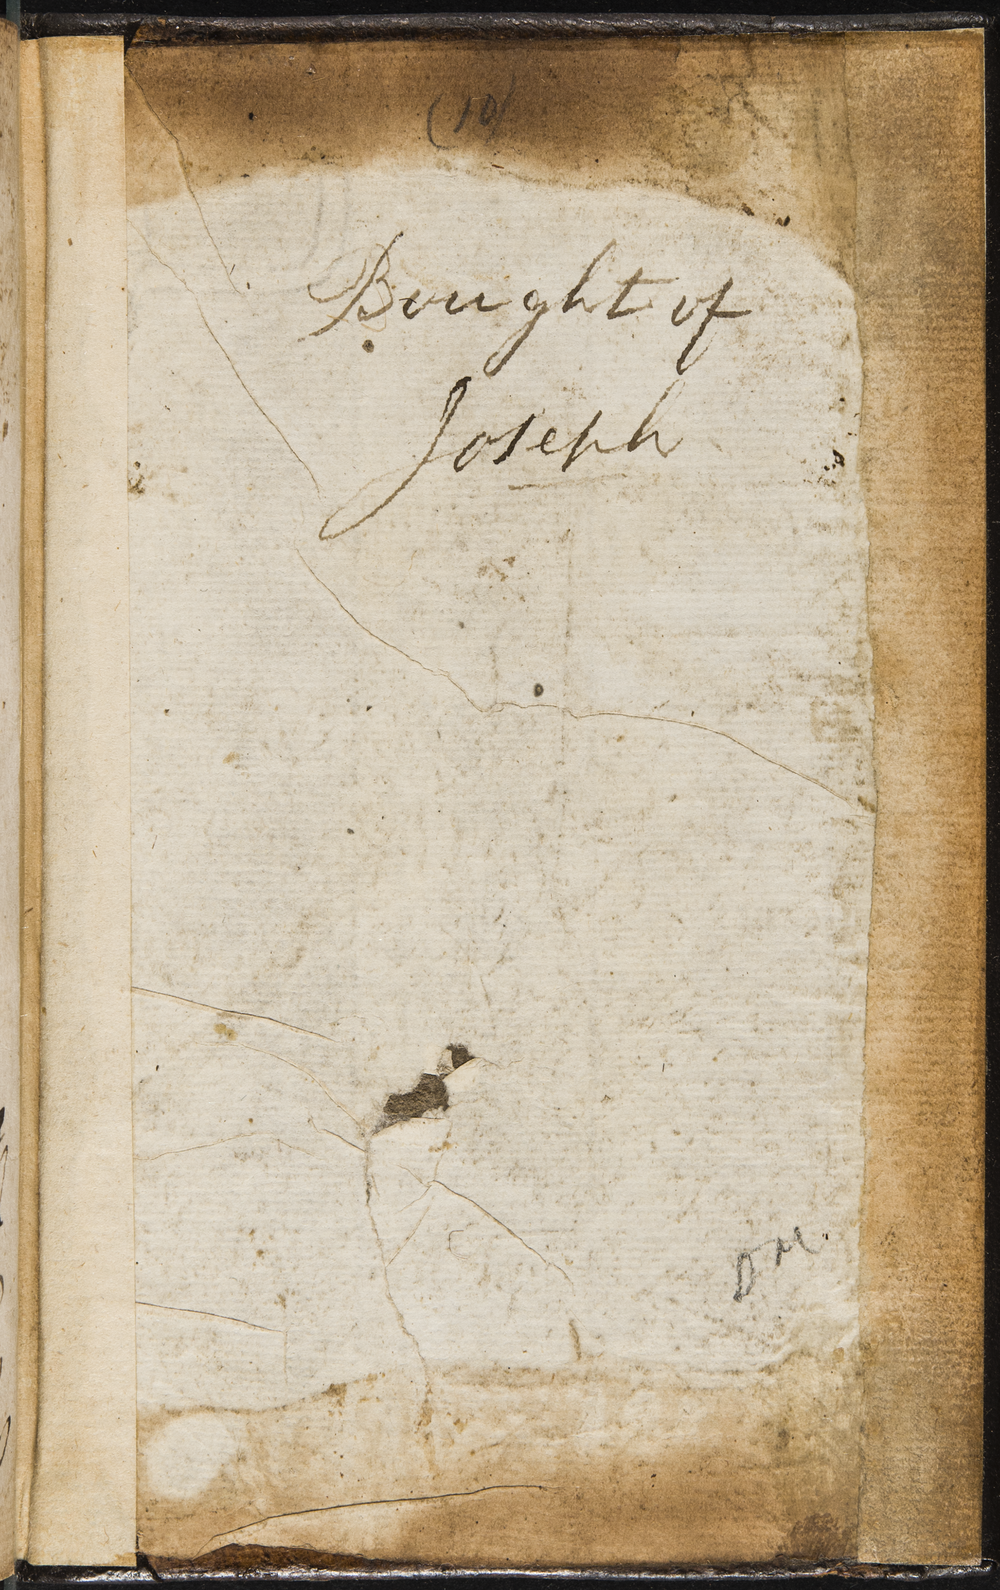 (10)
Bought of
Joseph